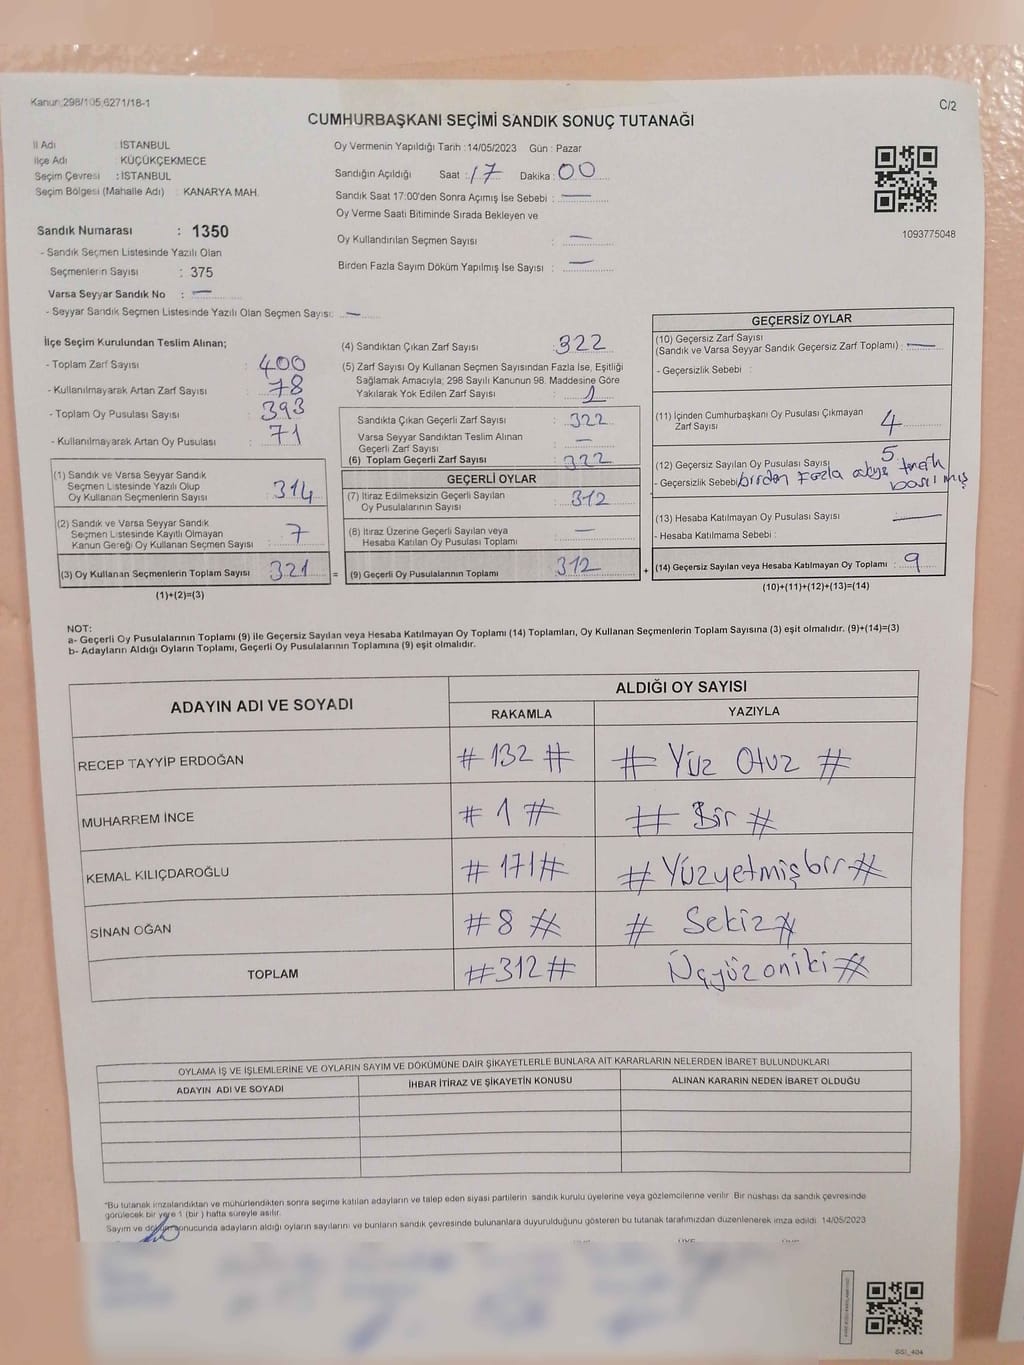 Kanun:298/105,6271/18-1
C/2
CUMHURBAŞKANI SEÇİMİ SANDIK SONUÇ TUTANAĞI
İl Adı : İSTANBUL
İlçe Adı : KÜÇÜKÇEKMECE
Seçim Çevresi : İSTANBUL
Seçim Bölgesi (Mahalle Adı) : KANARYA MAH.
Oy Vermenin Yapıldığı Tarih :14/05/2023 Gün : Pazar
Sandığın Açıldığı Saat : 17 Dakika : 00
Sandık Saat 17:00'den Sonra Açımış İse Sebebi : —
Oy Verme Saati Bitiminde Sırada Bekleyen ve
Oy Kullandırılan Seçmen Sayısı : —
Birden Fazla Sayım Döküm Yapılmış İse Sayısı : —
1093775048
Sandık Numarası : 1350
- Sandık Seçmen Listesinde Yazılı Olan
Seçmenlerin Sayısı : 375
Varsa Seyyar Sandık No : —
- Seyyar Sandık Seçmen Listesinde Yazılı Olan Seçmen Sayısı: —
İlçe Seçim Kurulundan Teslim Alınan;
- Toplam Zarf Sayısı : 400
- Kullanılmayarak Artan Zarf Sayısı : 78
- Toplam Oy Pusulası Sayısı : 393
- Kullanılmayarak Artan Oy Pusulası : 71
(1) Sandık ve Varsa Seyyar Sandık
Seçmen Listesinde Yazılı Olup
Oy Kullanan Seçmenlerin Sayısı : 314
(2) Sandık ve Varsa Seyyar Sandık
Seçmen Listesinde Kayıtlı Olmayan
Kanun Gereği Oy Kullanan Seçmen Sayısı : 7
(3) Oy Kullanan Seçmenlerin Toplam Sayısı : 321
(1)+(2)=(3)
(4) Sandıktan Çıkan Zarf Sayısı : 322
(5) Zarf Sayısı Oy Kullanan Seçmen Sayısından Fazla İse, Eşitliği
Sağlamak Amacıyla; 298 Sayılı Kanunun 98. Maddesine Göre
Yakılarak Yok Edilen Zarf Sayısı : 1
Sandıkta Çıkan Geçerli Zarf Sayısı : 322
Varsa Seyyar Sandıktan Teslim Alınan
Geçerli Zarf Sayısı : —
(6) Toplam Geçerli Zarf Sayısı : 322
GEÇERLİ OYLAR
(7) İtiraz Edilmeksizin Geçerli Sayılan
Oy Pusulalarının Sayısı : 312
(8) İtiraz Üzerine Geçerli Sayılan veya
Hesaba Katılan Oy Pusulası Toplamı : —
= (9) Geçerli Oy Pusulalarının Toplamı : 312 +
GEÇERSİZ OYLAR
(10) Geçersiz Zarf Sayısı
(Sandık ve Varsa Seyyar Sandık Geçersiz Zarf Toplamı) : —
- Geçersizlik Sebebi :
(11) İçinden Cumhurbaşkanı Oy Pusulası Çıkmayan
Zarf Sayısı : 4
(12) Geçersiz Sayılan Oy Pusulası Sayısı : 5
- Geçersizlik Sebebi birden Fazla adaya tercih
basılmış
(13) Hesaba Katılmayan Oy Pusulası Sayısı : —
- Hesaba Katılmama Sebebi :
(14) Geçersiz Sayılan veya Hesaba Katılmayan Oy Toplamı : 9
(10)+(11)+(12)+(13)=(14)
NOT:
a- Geçerli Oy Pusulalarının Toplamı (9) ile Geçersiz Sayılan veya Hesaba Katılmayan Oy Toplamı (14) Toplamları, Oy Kullanan Seçmenlerin Toplam Sayısına (3) eşit olmalıdır. (9)+(14)=(3)
b- Adayların Aldığı Oyların Toplamı, Geçerli Oy Pusulalarının Toplamına (9) eşit olmalıdır.
ADAYIN ADI VE SOYADI ALDIĞI OY SAYISI
RAKAMLA YAZIYLA
RECEP TAYYİP ERDOĞAN # 132 # # Yüz Otuz #
MUHARREM İNCE # 1 # # Bir #
KEMAL KILIÇDAROĞLU # 171# # Yüzyetmişbir #
SİNAN OĞAN #8 # # Sekiz#
TOPLAM #312# Üçyüzoniki#
OYLAMA İŞ VE İŞLEMLERİNE VE OYLARIN SAYIM VE DÖKÜMÜNE DAİR ŞİKAYETLERLE BUNLARA AİT KARARLARIN NELERDEN İBARET BULUNDUKLARI
ADAYIN ADI VE SOYADI İHBAR İTİRAZ VE ŞİKAYETİN KONUSU ALINAN KARARIN NEDEN İBARET OLDUĞU
*Bu tutanak imzalandıktan ve mühürlendikten sonra seçime katılan adayların ve talep eden siyasi partilerin sandık kurulu üyelerine veya gözlemcilerine verilir. Bir nüshası da sandık çevresinde
görülecek bir yere 1 (bir ) hafta süreyle asılır.
Sayım ve döküm sonucunda adayların aldığı oyların sayılarını ve bunların sandık çevresinde bulunanlara duyurulduğunu gösteren bu tutanak tarafımızdan düzenlenerek imza edildi. 14/05/2023
SSI_404